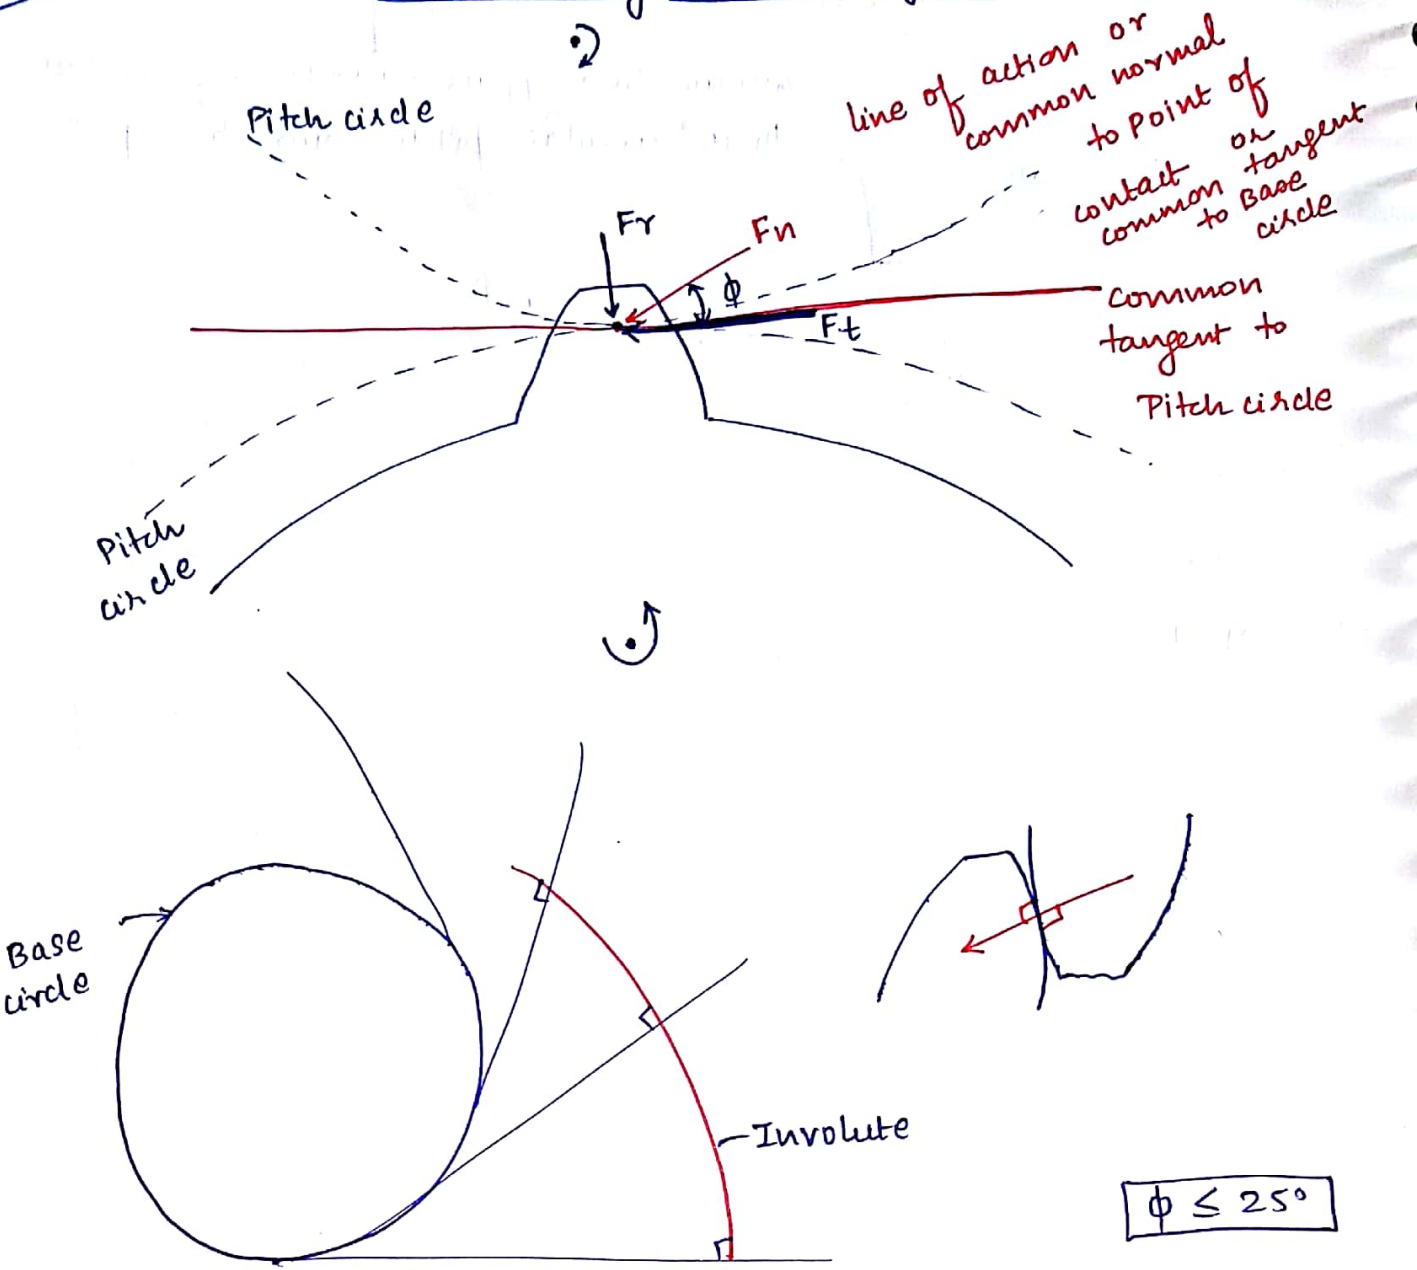 line of action or
common normal
to point of
contact or
common tangent
to Base
circle
Pitch circle
Fr
Fn
ϕ
Ft
Common
tangent to
Pitch circle
Pitch
circle
Base
circle
Involute
ϕ ≤ 25°